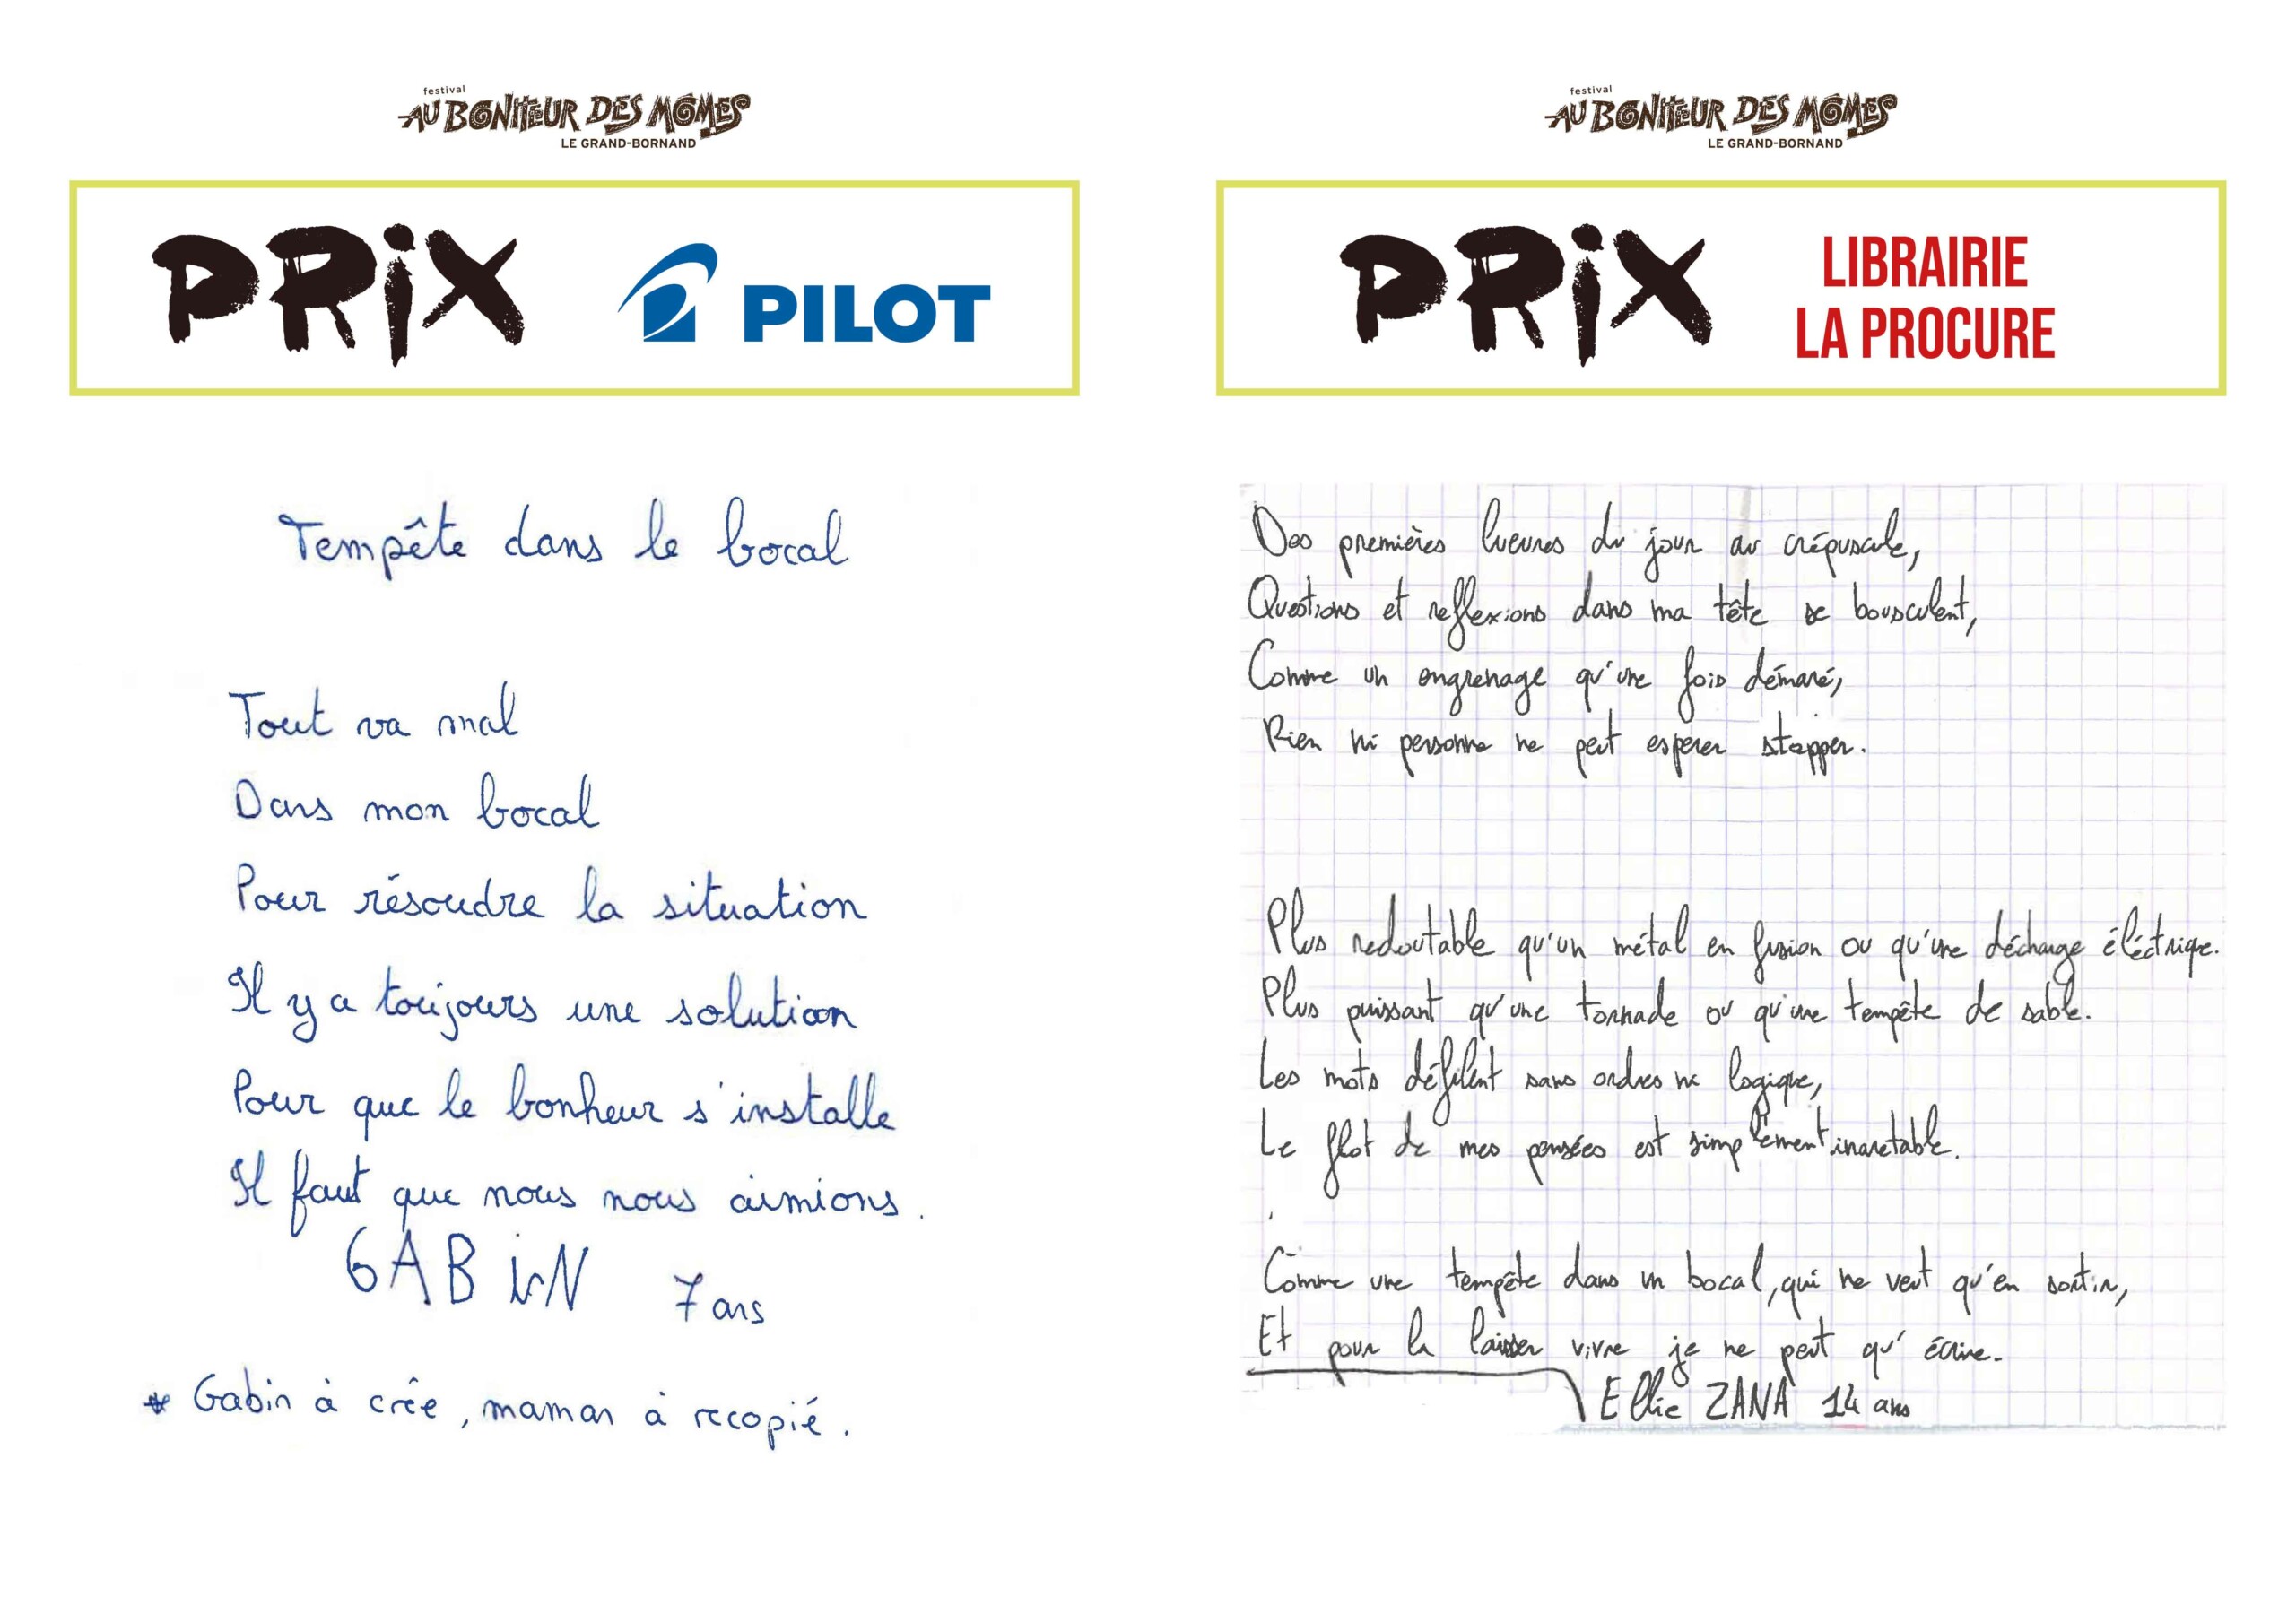 festival
AU BONHEUR DES MÔMES
LE GRAND-BORNAND
PRiX PILOT
Tempête dans le bocal
Tout va mal
Dans mon bocal
Pour résoudre la situation
Il y a toujours une solution
Pour que le bonheur s'installe
Il faut que nous nous aimions.
GABiN 7 ans
* Gabin à crée, maman à recopié.
festival
AU BONHEUR DES MÔMES
LE GRAND-BORNAND
PRiX LIBRAIRIE
LA PROCURE
Des premières lueures du jour au crépuscule,
Questions et reflexions dans ma tête se bousculent,
Comme un engrenage qu'une fois démaré,
Rien ni personne ne peut esperer stopper.
Plus redoutable qu'un métal en fusion ou qu'une décharge éléctrique.
Plus puissant qu'une tornade ou qu'une tempête de sable.
Les mots défilent sans ordres ni logique,
Le flot de mes pensées est simplement inaretable.
Comme une tempête dans un bocal, qui ne veut qu'en sortir,
Et pour la laisser vivre je ne peut qu'écrire.
Ellie ZANA 14 ans